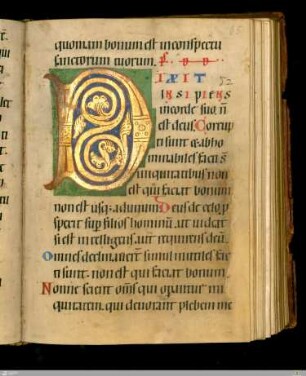 quoniam bonum est in conspectu
sanctorum tuorum.
DIXIT
INSIPIENS
in corde suo n̄
est deus. Corrup
ti sunt & abho
minabiles facti s̄
in iniquitatibus non
est qui faciat bonum
non est usq; ad unum. Deus de celo p
spexit sup filios hominū. ut uideat
si est intelligens. aut requirens deū.
Omnes declinauerunt simul inutiles fac
ti sunt. non est qui faciat bonum
Nonne scient oms̄ qui opantur ini
quitatem. qui deuorant plebem me